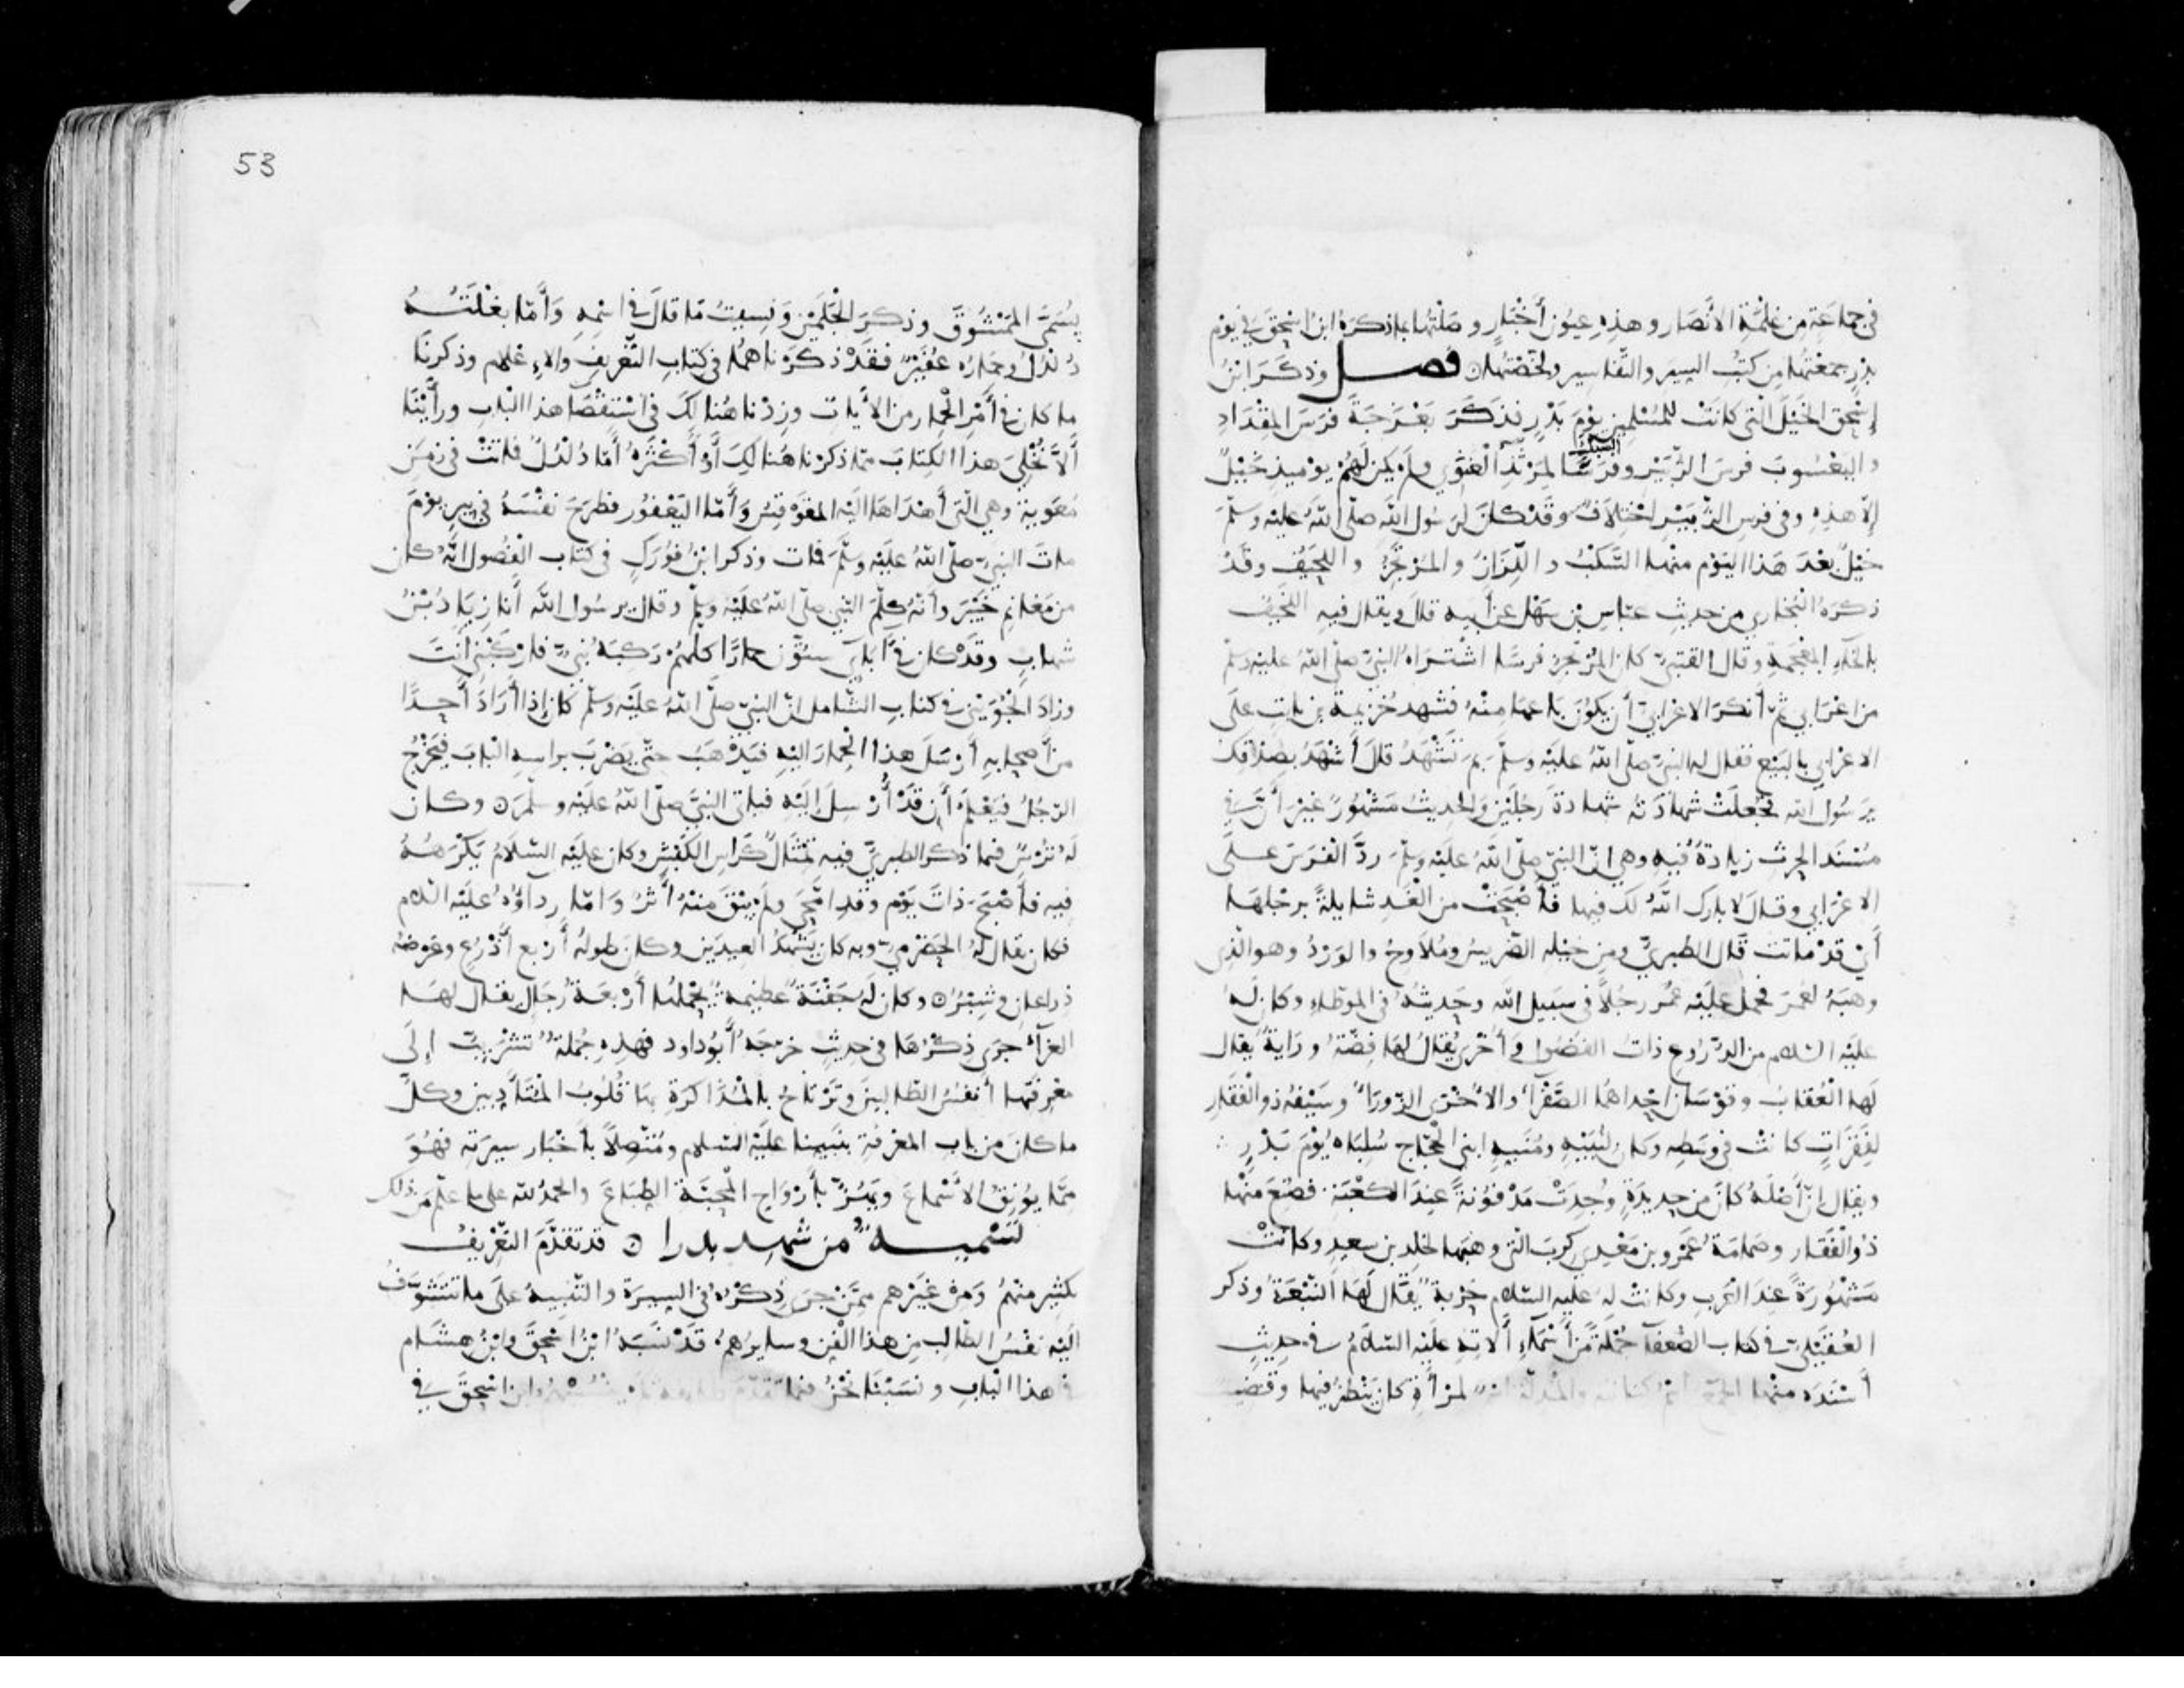 في جماعة من غلمة الأنصار وهذه عيون أخبار وصلتها بما ذكره ابن اسحق في يوم
بدر جمعتها من كتب السير والتفاسير ولخصتها فصل وذكر ابن
إسحق الخيل التي كانت للمسلمين يوم بدر فذكر بعزجة فرس المقداد
واليعسوب فرس الزبير وفرسا لمرثد الغنوي ولم يكن لهم يوميذ خيل
السبل
إلا هذه وفي فرس الزبير اختلاف وقد كان لرسول الله صلى الله عليه وسلم
خيل بعد هذا اليوم منها السكب واللزاز والمرتجز واللحيف وقد
ذكره البخاري من حديث عباس بن سهل عن أبيه قال ويقال فيه اللخيف
بالخاء المعجمة وقال القتبي كان المرتجز فرسا اشتراه النبي صلى الله عليه وسلم
من اعرابي ثم أنكر الاعرابي أن يكون باعها منه فشهد خزيمة بن ثابت على
الاعرابي بالبيع فقال له النبي صلى الله عليه وسلم بم تشهد قال أشهد بصدقك
يرسول الله فجعلت شهادته شهادة رجلين والحديث مشهور غير أن في
مسند الحرث زيادة فيه وهي ان النبي صلى الله عليه وسلم رد الفرس على
الاعرابي وقال لا بارك الله لك فيها فأصبحت من الغد شايلة برجلها
أي قد ماتت قال الطبري ومن خيله الضريس وملاوح والورد وهو الذي
وهبه لعمر فحمل عليه عمر رجلا في سبيل الله وحديثه في الموطاء وكان له
عليه السلام من الدروع ذات الفضول وأخرى يقال لها فضة وراية يقال
لها العقاب وقوسان إحداهما الصفراء والأخرى الزوراء وسيفه ذو الفقار
لفقرات كانت في وسطه وكان لنبيه ومنبه ابني الحجاج سلباه يوم بدر
ويقال ان أصله كان من حديدة وجدت مدفونة عند الكعبة فصنع منها
ذو الفقار وصمصامة عمرو بن معدي كرب التي وهبها لخلد بن سعيد وكانت
مشهورة عند العرب وكانت له عليه السلام حربة يقال لها النبعة وذكر
العقيلي في كتاب الضعفآ جملة من أسماء ألاته عليه السلام في حديث
أسنده منها لمرأة كان ينظر فيها وقضيب
53
يسمى الممشوق وذكر الجلمين ونسيت ما قال في اسمه وأما بغلته
دلدل وحماره عفير فقد ذكرناهما في كتاب التعريف والاعلام وذكرنا
ما كان في أمر الحمار من الأيات وزدنا هنالك في استقصا هذا الباب ورأينا
ألا نخلي هذا الكتاب مما ذكرنا هنالك أو أكثره أما دلدل فماتت في زمن
معوية وهي التي أهداها اليه المقوقس وأما اليعفور فطرح نفسه في بير يوم
مات النبي صلى الله عليه وسلم فمات وذكر ابن فورك في كتاب الفصول انه كان
من مغانم خيبر وأنه كلم النبي صلى الله عليه وسلم وقال يرسول الله أنا زياد بن
شهاب وقد كان في أبايي ستون حمارا كلهم ركبه نبي فاركبني أنت
وزاد الجويني في كتاب الشامل ان النبي صلى الله عليه وسلم كان إذا أراد أحدا
من أصحابه أرسل هذا الحمار اليه فيذهب حتى يضرب براسه الباب فيخرج
الرجل فيعلم أن قد أرسل إليه فياتي النبي صلى الله عليه وسلم وكان
له ترس فيما ذكر الطبري فيه تمثال كراس الكبش وكان عليه السلام يكرهه
فيه فأصبح ذات يوم وقد امحى ولم يبق منه أثر وأما رداؤه عليه السلام
فكان يقال له الحضرمي وبه كان يشهد العيدين وكان طوله أربع أذرع وعرضه
ذراعان وشبر وكان له جفنة عظيمة يحملها أربعة رجال يقال لها
الغرآء جرى ذكرها في حديث خرجه أبو داود فهذه جملة تشريب إلى
معرفتها أنفس الطالبين وترتاح بالمذاكرة بها قلوب المتأدبين وكل
ما كان من باب المعرفة بنبينا عليه السلام ومتصلا بأخبار سيرته فهو
مما يونق الأسماع ويهز بأرواح المحبة الطباع والحمد لله على ما علم من ذلك
تسمية من شهد بدرا قد تقدم التعريف
بكثير منهم ومن غيرهم ممن جرى ذكره في السيرة والتنبيه على ما تتشوف
اليه نفس الطالب من هذا الفن وسايرهم قد نسبه ابن اسحق وابن هشام
في هذا الباب ونسبنا نحن فيما تقدم ابن اسحق في